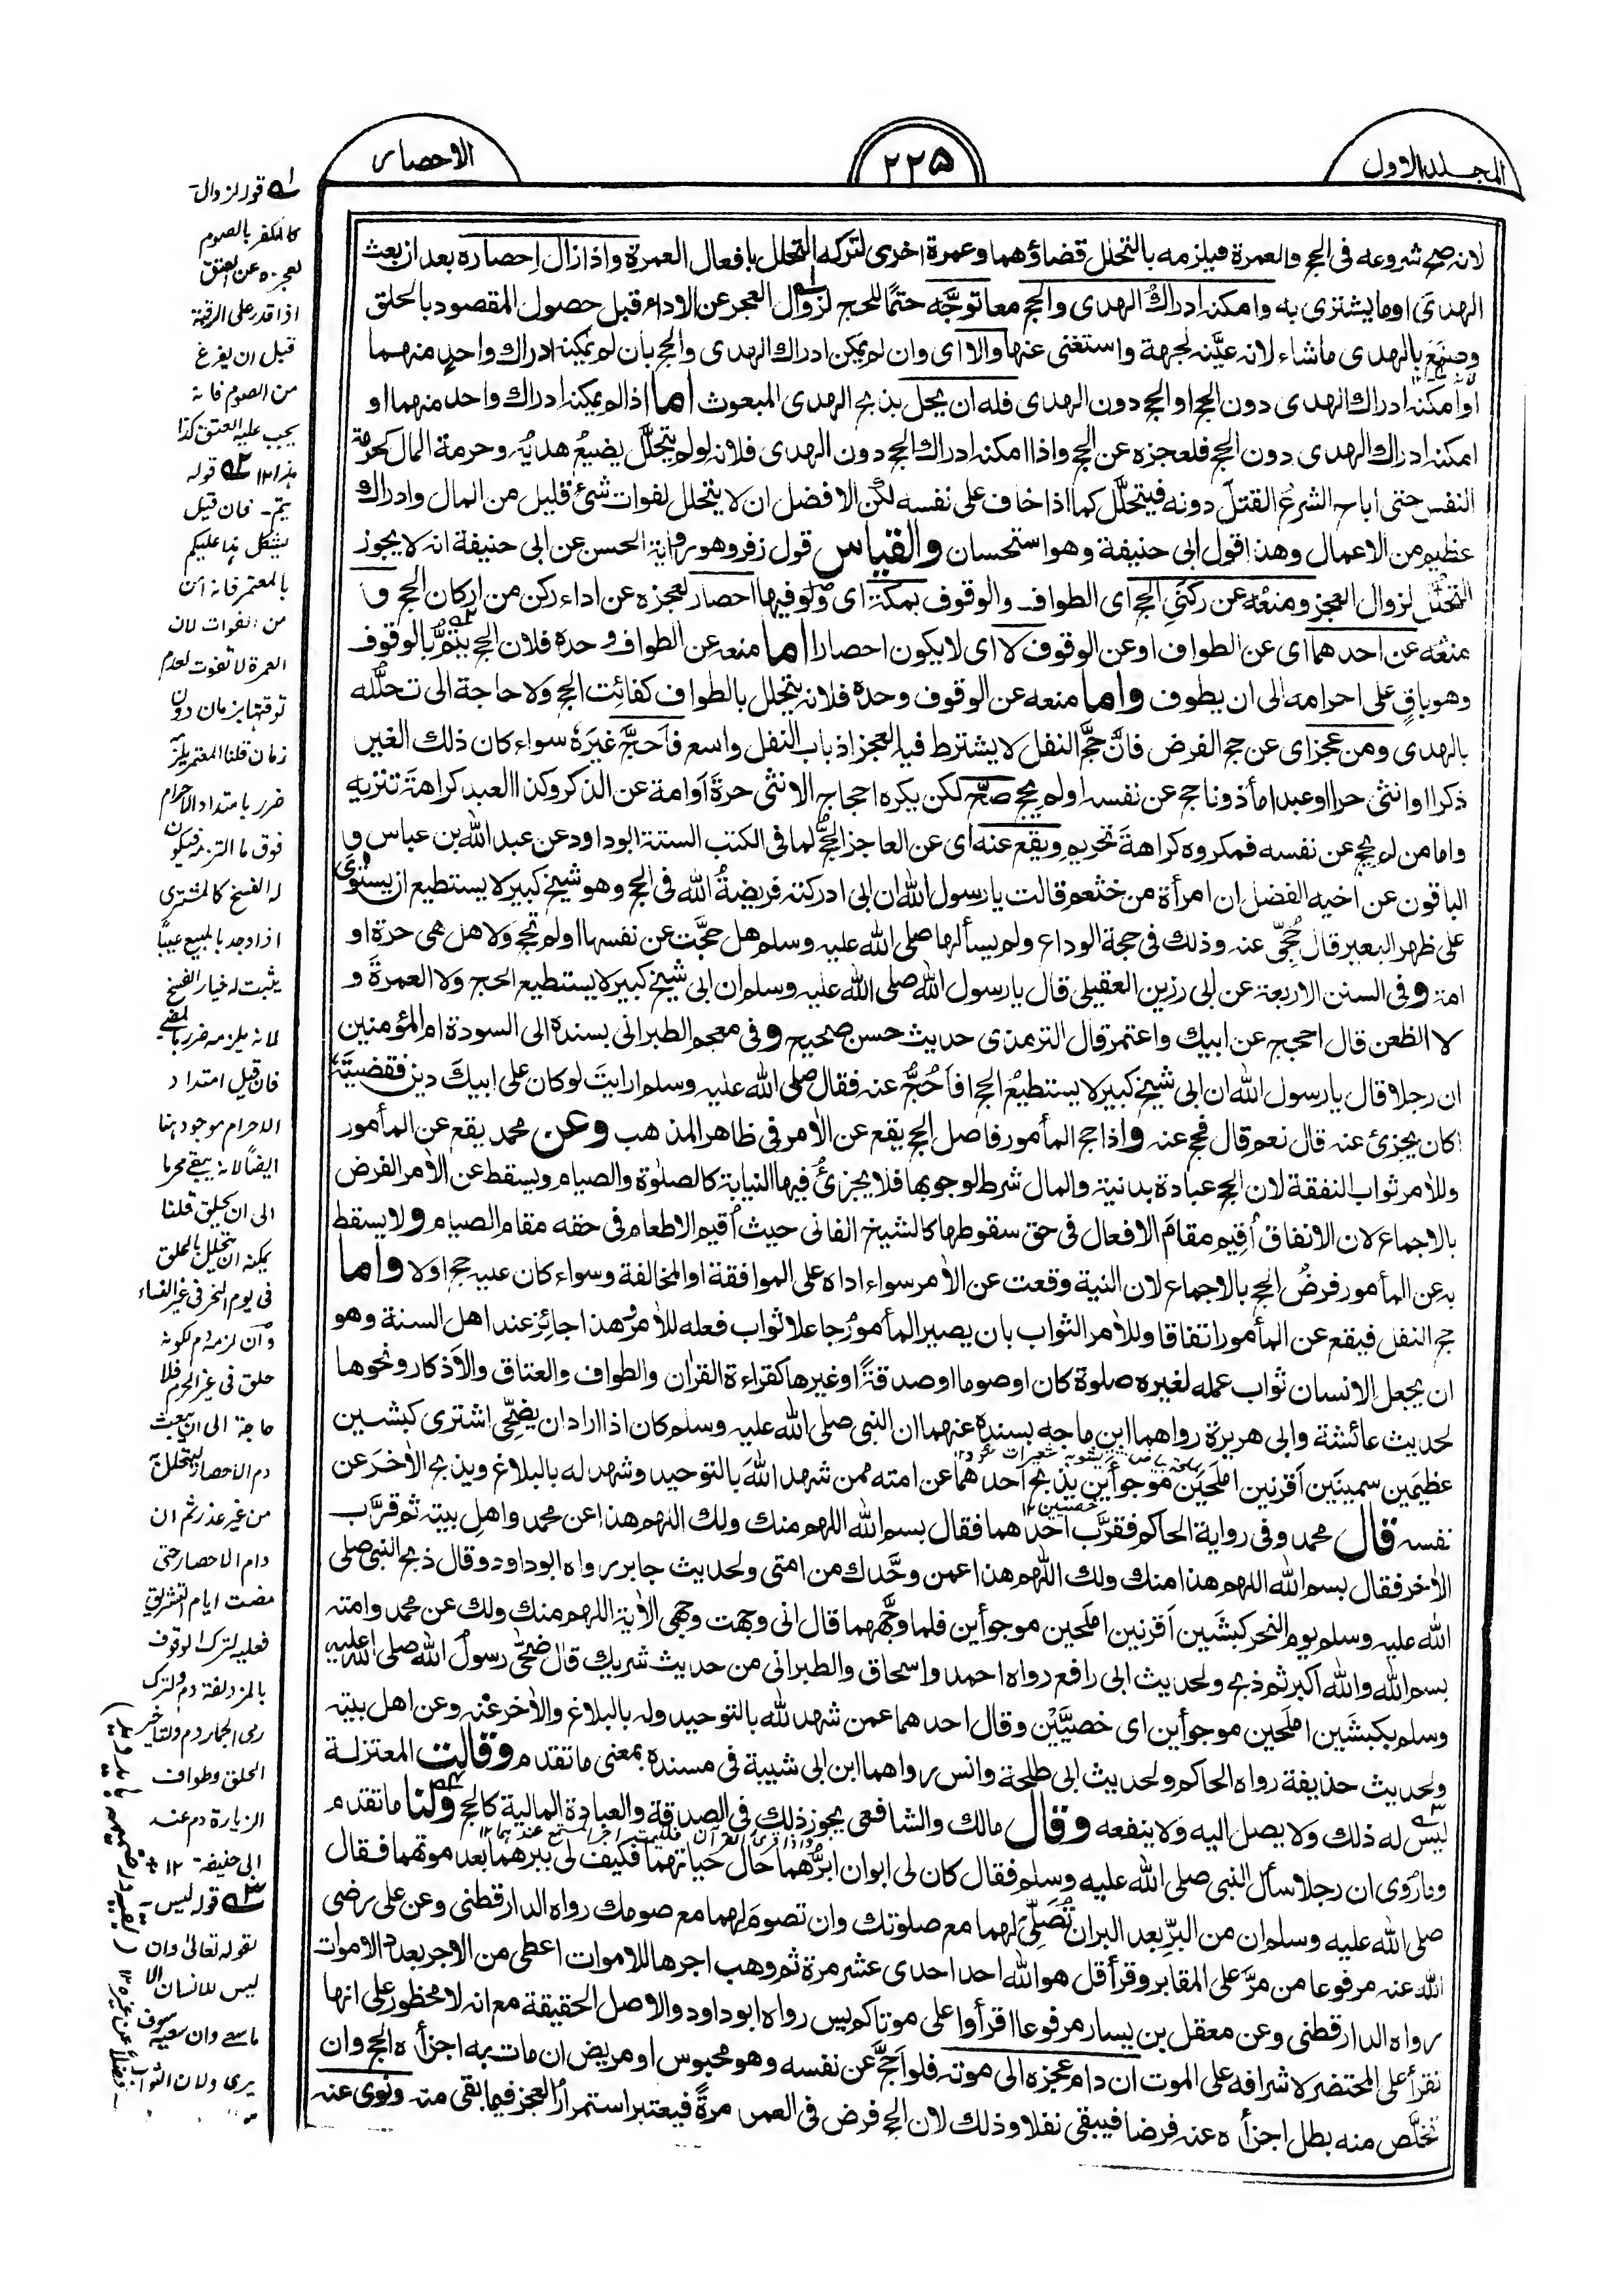 المجلد الاول
٢٢٥
الاحصار
لانه صح شروعه فی الحج والعمرة فيلزمه بالتحلل قضاؤهما وعمرة اخری لتركه التحلل بافعال العمرة واذا زال احصاره بعد ان بعث
الهدی او ما يشتری به وامكنه ادراك الهدی والحج معا توجّه حتمًا للحج لزوال العجز عن الاداء قبل حصول المقصود بالحلق
وصنع بالهدی ما شاء لانه عيّنه لجهة واستغنی عنها والا ای وان لم يمكن ادراك الهدی والحج بان لم يمكنه ادراك واحد منهما
او امكنه ادراك الهدی دون الحج او الحج دون الهدی فله ان يحل بذبح الهدی المبعوث اما اذا لم يمكنه ادراك واحد منهما او
امكنه ادراك الهدی دون الحج فلعجزه عن الحج واذا امكنه ادراك الحج دون الهدی فلانه لو لم يتحلّل يضيعُ هديُه وحرمة المال كحرمة
النفس حتی اباح الشرعُ القتلَ دونه فيتحلّل كما اذا خاف علی نفسه لكن الافضل ان لا يتحلل لفوات شیء قليل من المال وادراك
عظيم من الاعمال وهذا قول ابی حنيفة وهو استحسان والقياس قول زفر وهو رواية الحسن عن ابی حنيفة انه لا يجوز
التحلل لزوال العجز ومنعُه عن ركنی الحج ای الطواف والوقوف بمكة ای ولو فيها احصار لعجزه عن اداء ركن من اركان الحج و
منعُه عن احدهما ای عن الطواف او عن الوقوف لا ای لا يكون احصارا اما منعه عن الطواف وحده فلان الحج يتمُّ بالوقوف
وهو باقٍ علی احرامه الی ان يطوف واما منعه عن الوقوف وحده فلانه يتحلل بالطواف كفائت الحج ولا حاجة الی تحلّله
بالهدی ومن عجز ای عن حج الفرض فانّ حجَّ النفل لا يشترط فيه العجز اذ باب النفل واسع فاَحجَّ غيرَهٗ سواء كان ذلك الغير
ذكرا او انثی حرا او عبدا مأذونا حج عن نفسه او لم يحج صحَّ لكن يكره احجاج الانثی حرةً او امة عن الذكر وكذا العبد كراهةَ تنزيه
واما من لم يحج عن نفسه فمكروه كراهةَ تحريم ويقع عنه ای عن العاجز الحجُّ لما فی الكتب الستة ابو داود عن عبد الله بن عباس و
الباقون عن اخيه الفضل ان امرأة من خثعم قالت يا رسول الله ان ابی ادركته فريضةُ الله فی الحج وهو شيخ كبير لا يستطيع ان يستوی
علی ظهر البعير قال حُجِّی عنه وذلك فی حجة الوداع ولم يسألها صلی الله عليه وسلم هل حجّت عن نفسها او لم تحج ولا هل هی حرة او
امة وفی السنن الاربعة عن ابی رزين العقيلی قال يا رسول الله صلی الله عليه وسلم ان ابی شيخ كبير لا يستطيع الحج ولا العمرة و
لا الظعن قال احجج عن ابيك واعتمر قال الترمذی حديث حسن صحيح وفی معجم الطبرانی بسنده الی السودة ام المؤمنين
ان رجلا قال يا رسول الله ان ابی شيخ كبير لا يستطيعُ الحج افاَحُجُّ عنه فقال صلی الله عليه وسلم ارايتَ لو كان علی ابيكَ دين فقضيتَهٗ
اكان يجزیٔ عنه قال نعم قال فحج عنه واذا حج المأمور فاصل الحج يقع عن الاٰمر فی ظاهر المذهب وعن محمد يقع عن المأمور
وللاٰمر ثواب النفقة لان الحج عبادة بدنية والمال شرط لوجوبها فلا يجزیُٔ فيها النيابة كالصلوٰة والصيام ويسقط عن الاٰمر الفرض
بالاجماع لان الانفاق اُقيم مقامَ الافعال فی حق سقوطها كالشيخ الفانی حيث اُقيم الاطعام فی حقه مقام الصيام ولا يسقط
به عن المأمور فرضُ الحج بالاجماع لان النية وقعت عن الاٰمر سواء اداه علی الموافقة او المخالفة وسواء كان عليه حج او لا واما
حج النفل فيقع عن المأمور اتفاقا وللاٰمر الثواب بان يصير المأمورُ جاعلا ثواب فعله للاٰمر وهذا جائز عند اهل السنة وهو
ان يجعل الانسان ثواب عمله لغيره صلوة كان او صوما او صدقةً او غيرها كقراءة القراٰن والطواف والعتاق والاَذكار ونحوها
لحديث عائشة وابی هريرة رواهما ابن ماجه بسنده عنهما ان النبی صلی الله عليه وسلم كان اذا اراد ان يضحّی اشتری كبشين
عظيمَين سمينَين اَقرنين املَحين موجوأين يذبح احدهما عن امته ممن شهد اللهَ بالتوحيد وشهد له بالبلاغ ويذبح الاٰخرَ عن
نفسه قال محمد وفی رواية الحاكم فقرَّب احدهما فقال بسم الله اللهم منك ولك اللهم هذا عن محمد واهلِ بيته ثم قرَّب
الاٰخر فقال بسم الله اللهم هذا منك ولك اللهم هذا عمن وحَّدك من امتی ولحديث جابر رواه ابو داود وقال ذبح النبی صلی
الله عليه وسلم يوم النحر كبشَين اَقرنين املَحين موجوأين فلما وجَّههما قال انی وجهت وجهی الاٰية اللهم منك ولك عن محمد وامته
بسم الله والله اكبر ثم ذبح ولحديث ابی رافع رواه احمد واسحاق والطبرانی من حديث شريك قال ضحّی رسول الله صلی الله عليه
وسلم بكبشَين املَحين موجوأين ای خصيَّيْن وقال احدهما عمن شهد لله بالتوحيد وله بالبلاغ والاٰخر عنْه وعن اهل بيته
ولحديث حذيفة رواه الحاكم ولحديث ابی طلحة وانس رواهما ابن ابی شيبة فی مسنده بمعنی ما تقدم وقالت المعتزلة
ليس له ذلك ولا يصل اليه ولا ينفعه وقال مالك والشافعی يجوز ذلك فی الصدقة والعبادة المالية كالحج ولنا ما تقدم
وما رُوی ان رجلا سأل النبی صلی الله عليه وسلم فقال كان لی ابوان ابرُّهما حال حياتهما فكيف لی ببرهما بعد موتهما فقال
صلی الله عليه وسلم ان من البرِّ بعد البر ان تُصَلِّیَ لهما مع صلوتك وان تصومَ لهما مع صومك رواه الدارقطنی وعن علی رضی
الله عنه مرفوعا من مرَّ علی المقابر وقرأ قل هو الله احد احدی عشر مرة ثم وهب اجرها للاموات اعطی من الاجر بعدد الاموات
رواه الدارقطنی وعن معقل بن يسار مرفوعا اقرأوا علی موتاكم يس رواه ابو داود والاصل الحقيقة مع انه لا محظور علی انها
تقرأ علی المحتضر لاشرافه علی الموت ان دام عجزه الی موته فلو اَحجَّ عن نفسه وهو محبوس او مريض ان مات به اجزأه الحج وان
تخلَّص منه بطل اجزأه عنه فرضا فيبقی نفلا وذلك لان الحج فرض فی العمر مرةً فيعتبر استمرارُ العجز فيما بقی منه ونوی عنه
١ه قوله لزوال۔
كالمكفر بالصوم
لعجزه عن العتق
اذا قدر علی الرقبة
قبل ان يفرغ
من الصوم فانه
يجب عليه العتق كذا
هذا ١٢ ٢ه قوله
يتم۔ فان قيل
يشكل هذا عليكم
بالمعتمر فانه آمن
من الفوات لان
العمرة لا تفوت لعدم
توقتها بزمان دون
زمان قلنا المعتمر يلزمه
ضرر بامتداد الاحرام
فوق ما التزمه فيكون
له الفسخ كالمشتری
اذا وجد بالمبيع عيبًا
يثبت له خيار الفسخ
لانه يلزمه ضرر بالمضی
فان قيل امتداد
الاحرام موجود ههنا
ايضًا لانه يبقے محرما
الی ان يحلق قلنا
يمكنه ان يتحلل بالحلق
فی يوم النحر فی غير النساء
وان لزمه دم لكونه
حلق فی غير الحرم فلا
حاجة الی ان يبعث
دم الاحصار ليتحلل به
من غير عذر ثم ان
دام الاحصار حتی
مضت ايام التشريق
فعليه لترك الوقوف
بالمزدلفة دم ولترك
رمی الجمار دم ولتاخير
الحلق وطواف
الزيارة دم عند
ابی حنيفة ١٢
٣ه قوله ليس۔
لقوله تعالیٰ وان
ليس للانسان الا
ما سعے وان سعيه سوف
يری ولان الثواب